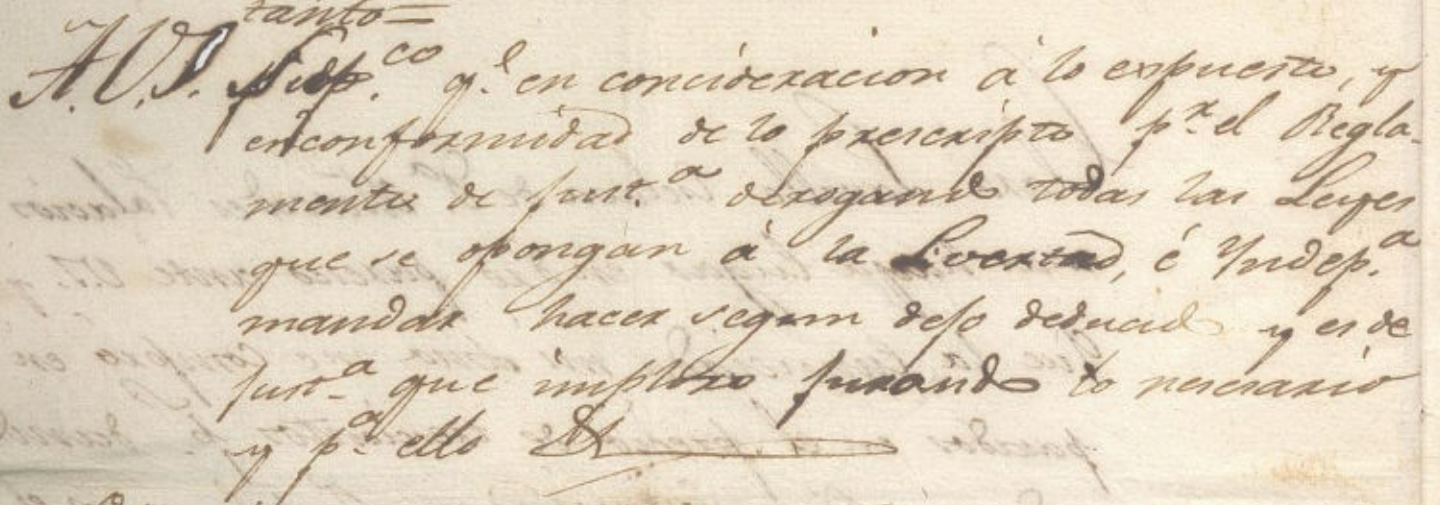 tanto=
A.V.S. Sup.co q.e en concideracion á lo expuesto, y
en conformidad de lo prescripto p.r el Regla-
mento de Just.a derogando todas las Leyes
que se opongan á la Livertad, é Yndep.a
mandar hacer segun dejo deducido y es de
Just.a que imploro jurando lo nesesario
y p.a ello &